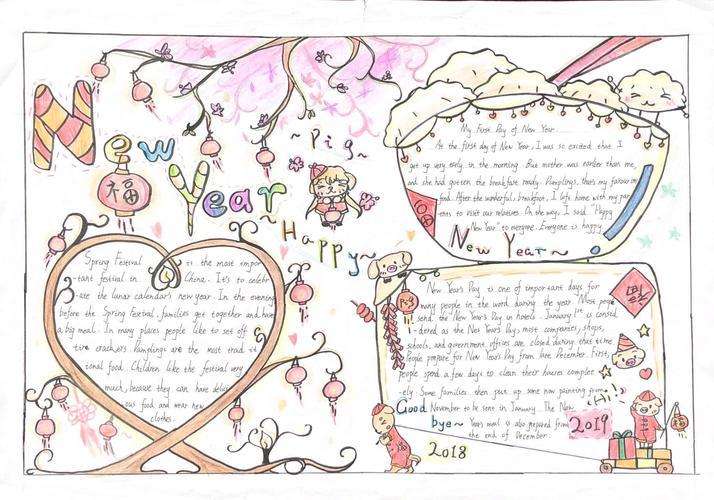 New
Year
福
~Pig~
~Happy~
My First Day of New Year
At the first day of New Year, I was so excited that I
got up very early in the morning. But mother was earlier than me,
and she had gotten the breakfast ready. Dumplings, that's my favour
food. After the wonderful breakfast, I left home with my par
ents to visit our relatives. On the way, I said "Happy
New Year" to everyone. Everyone is happy.
New Year~
Spring Festival is the most impor
-tant festival in China. It's to celebr
-ate the lunar calendar's new year. In the evening
before the Spring Festival, families get together and have
a big meal. In many places people like to set off
fire crackers. Dumplings are the most tradit
ional food. Children like the festival very
much, because they can have delici
ous food and wear new
clothes.
New Year's Day is one of important days for
many people in the word during the year. Most people
send the New Year's Day in hotels. January 1st is consid
-dered as the New Year's Day, most companies, shops,
schools, and government offices are closed during that time.
People prepare for New Year's Day from late December. First,
people spend a few days to clean their houses complet
-ely. Some families then pick up some new painting from
November to be seen in January. The New
Years meal is also prepared from
the end of December.
Pig
福
Hi!
Good
bye~
2018
2019
福